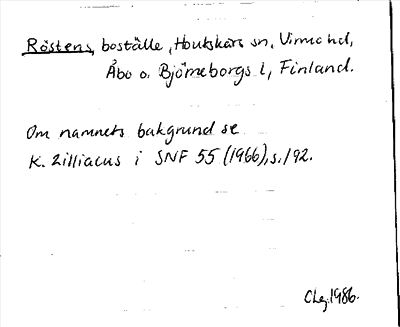 Röstens, boställe, Houtskärs sn, Virmo hd,
Åbo o. Björneborgs l, Finland.
Om namnets bakgrund se
K. Zilliacus i SNF 55 (1966), s. 192.
CLg. 1986.